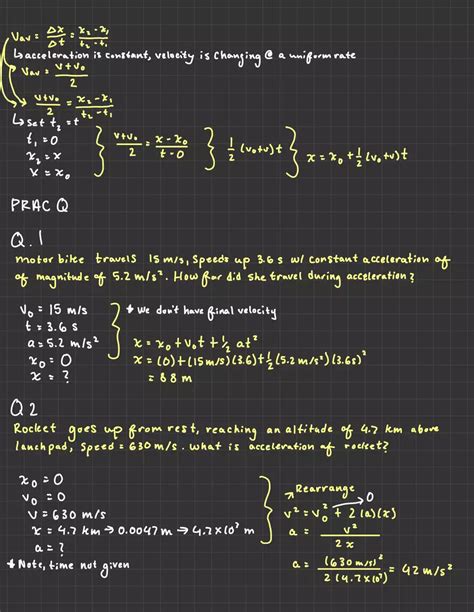 Vav = Δx/Δt = x₂-x₁/t₂-t₁
↳ acceleration is constant, velocity is changing @ a uniform rate
Vav = v+v₀/2
v+v₀/2 = x₂-x₁/t₂-t₁
↳ set t₂ = t
t₁ = 0
x₂ = x
x = x₀
v+v₀/2 = x-x₀/t-0
1/2 (v₀+v)t
x = x₀ + 1/2 (v₀+v)t
PRAC Q
Q.1
motor bike travels 15 m/s, speeds up 3.6 s w/ constant acceleration of
of magnitude of 5.2 m/s². How far did she travel during acceleration?
v₀ = 15 m/s
t = 3.6 s
a = 5.2 m/s²
x₀ = 0
x = ?
* we don't have final velocity
x = x₀ + v₀t + 1/2 at²
x = (0)+(15m/s)(3.6)+1/2(5.2 m/s²)(3.6s)²
= 88 m
Q2
Rocket goes up from rest, reaching an altitude of 4.7 km above
lanchpad, speed = 630 m/s. what is acceleration of rocket?
x₀ = 0
v₀ = 0
v = 630 m/s
x = 4.7 km → 0.0047 m → 4.7×10³ m
a = ?
* Note, time not given
Rearrange
v² = v₀² + 2(a)(x)
0
a = v²/2x
a = (630 m/s)²/2(4.7×10³) = 42 m/s²